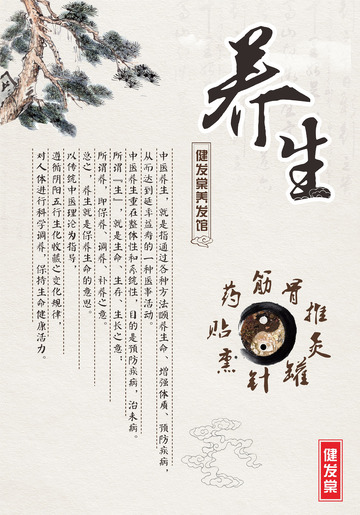 养生
健发棠养发馆
中医养生，就是指通过各种方法颐养生命、增强体质、预防疾病，
从而达到延年益寿的一种医事活动。
中医养生重在整体性和系统性，目的是预防疾病，治未病。
所谓『生』，就是生命、生存、生长之意；
所谓养，即保养、调养、补养之意。
总之，养生就是保养生命的意思。
以传统中医理论为指导，
遵循阴阳五行生化收藏之变化规律，
对人体进行科学调养，保持生命健康活力。
骨
筋
推
药
灸
贴
罐
熏
针
健发棠